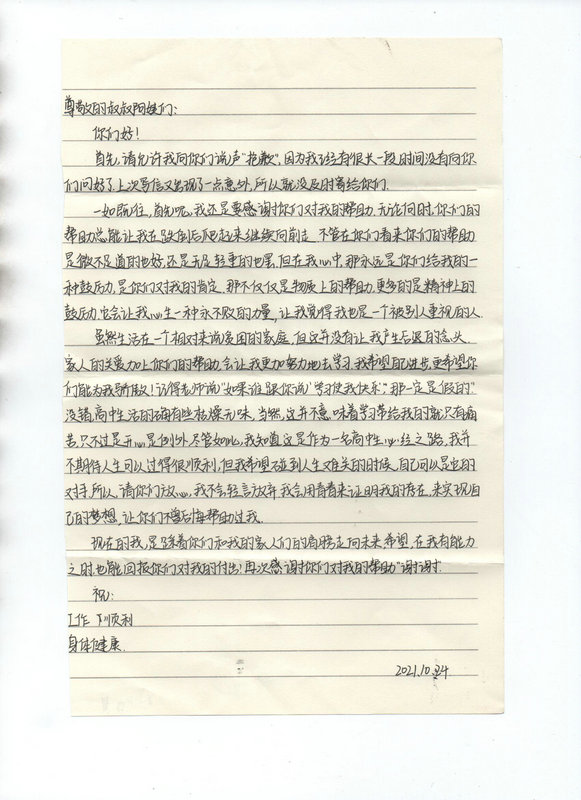 尊敬的叔叔阿姨们:
你们好!
首先,请允许我向你们说声"抱歉",因为我已经有很长一段时间没有向你
们问好了,上次写信又出现了一点意外,所以就没及时寄给你们.
一如既往,首先呢,我还是要感谢你们对我的帮助.无论何时,你们的
帮助总能让我在跌倒后爬起来继续向前走.不管在你们看来你们的帮助
是微不足道的也好,还是无足轻重的也罢,但在我心中,那永远是你们给我的一
种鼓励,是你们对我的肯定.那不仅仅是物质上的帮助,更多的是精神上的
鼓励,它会让我心生一种永不败的力量,让我觉得我也是一个被别人重视的人.
虽然生活在一个相对来说贫困的家庭,但这并没有让我产生后退的念头.
家人的关爱加上你们的帮助,会让我更加努力地去学习,我希望自己进步,更希望你
们能为我骄傲!记得老师说"如果谁跟你说'学习使我快乐',那一定是假的."
没错,高中生活的确有些枯燥无味,当然,这并不意味着学习带给我的就只有痛
苦,只不过是开心是例外.尽管如此,我知道这是作为一名高中生心经之路,我并
不期待人生可以过得很顺利,但我希望碰到人生难关的时候,自己可以是它的
对手.所以,请你们放心,我不会轻言放弃,我会用青春来证明我的存在,来实现自
己的梦想,让你们不会后悔帮助过我.
现在的我,是随着你们和我的家人们的肩膀走向未来希望,在我有能力
之时,也能回报你们对我的付出!再次感谢你们对我的帮助"谢谢".
祝:
工作顺利
身体健康.
2021.10.24